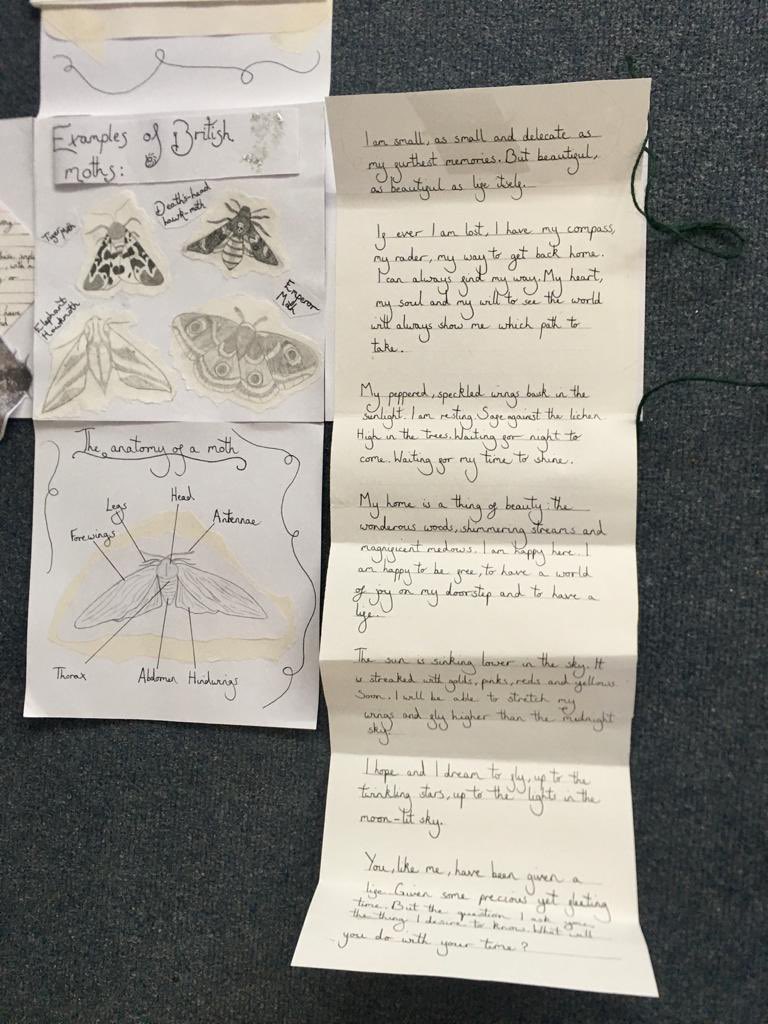 Examples of British
moths:
Tiger moth
Death's-head
hawk-moth
Elephant
Hawkmoth
Emperor
Moth
The anatomy of a moth
Head
Legs
Antennae
Forewings
Thorax
Abdomen
Hindwings
I am small, as small and delecate as
my furthest memories. But beautiful,
as beautiful as life itself.
If ever I am lost, I have my compass,
my rader, my way to get back home.
I can always find my way. My heart,
my soul and my will to see the world
will always show me which path to
take.
My peppered, speckled wings bask in the
sunlight. I am resting. Safe against the lichen
High in the trees. Waiting for night to
come. Waiting for my time to shine.
My home is a thing of beauty: the
wonderous woods, shimmering streams and
magnificent medows. I am happy here. I
am happy to be free, to have a world
of joy on my doorstep and to have a
life.
The sun is sinking lower in the sky. It
is streaked with golds, pinks, reds and yellows.
Soon. I will be able to stretch my
wings and fly higher than the midnight
sky.
I hope and I dream to fly, up to the
twinkling stars, up to the lights in the
moon-lit sky.
You, like me, have been given a
life. Given some precious yet fleeting
time. But the question I ask you,
the thing I desire to know. What will
you do with your time?